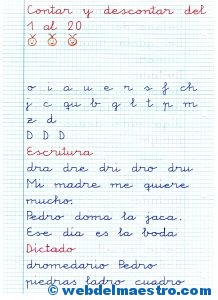 Contar y descontar del
1 al 20
o i a u e r s f ch
j c qu b g l t p m
z d
D D D
Escritura
dra dre dri dro dru
Mi madre me quiere
mucho.
Pedro doma la jaca.
Ese día es la boda
Dictado
dromedario Pedro
piedras ladro cuadro
© webdelmaestro.com